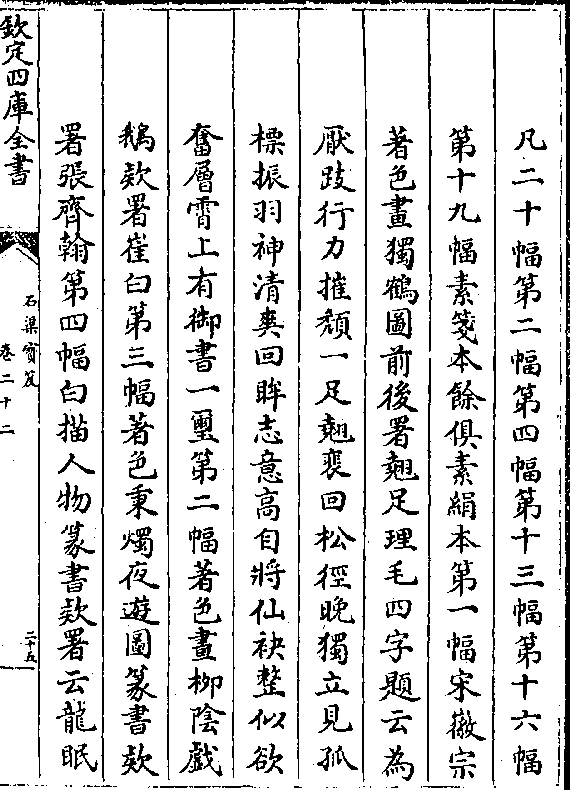 凡二十幅第二幅第四幅第十三幅第十六幅
第十九幅素箋本餘俱素絹本第一幅宋徽宗
著色畫獨鶴圖前後署翹足理毛四字題云為
厭跂行力摧頹一足翹裵回松徑晚獨立見孤
標振羽神清爽回眸志意高自將仙袂整似欲
奮層霄上有御書一璽第二幅著色畫栁陰戲
鵝欵署崔白第三幅著色秉燭夜遊圖篆書欵
署張齊翰第四幅白描人物篆書欵署云龍眠
欽定四庫全書
石渠寶笈
卷二十二
二十五